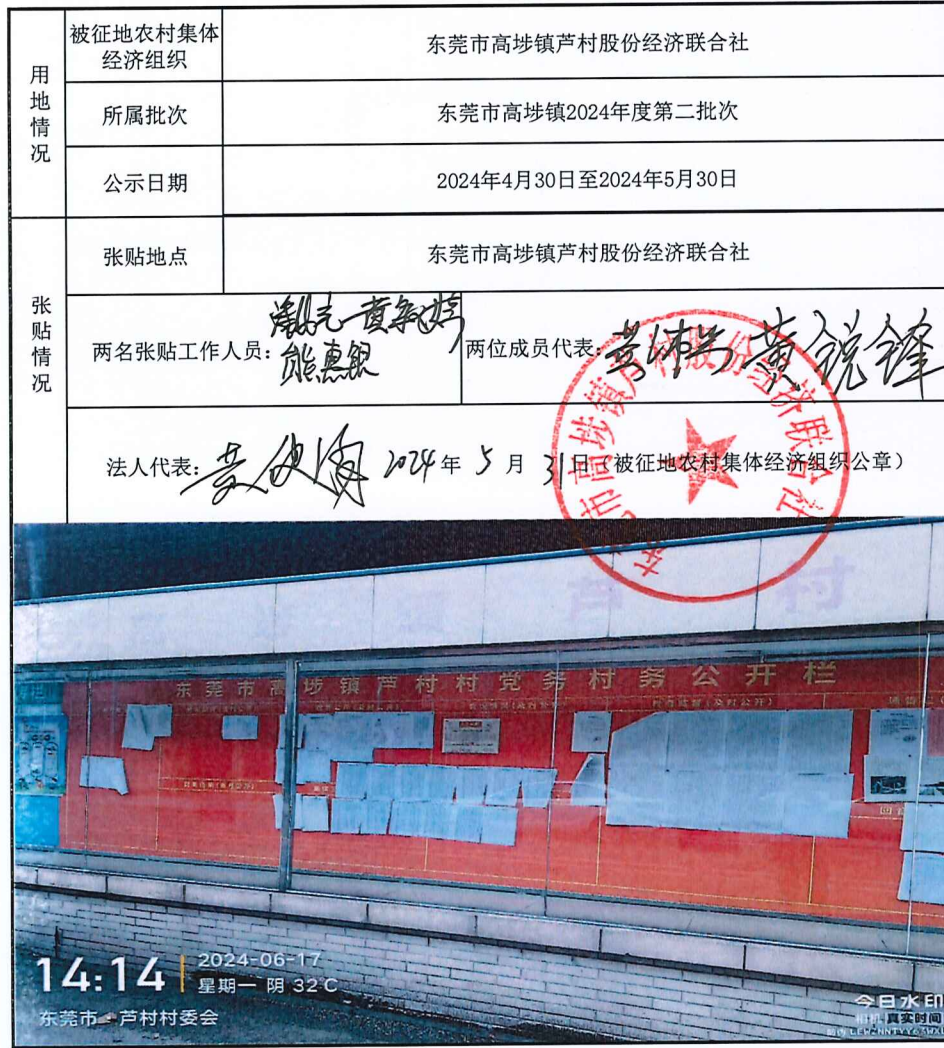 用地情况
被征地农村集体
经济组织
东莞市高埗镇芦村股份经济联合社
所属批次
东莞市高埗镇2024年度第二批次
公示日期
2024年4月30日至2024年5月30日
张贴情况
张贴地点
东莞市高埗镇芦村股份经济联合社
两名张贴工作人员:
熊惠银
两位成员代表:
黄锐锋
法人代表:
2024年5月31日(被征地农村集体经济组织公章)
东莞市高埗镇芦村股份经济联合社
芦村
东莞市高埗镇芦村村党务村务公开栏
14:14
2024-06-17
星期一 阴 32℃
东莞市·芦村村委会
今日水印
相机 真实时间